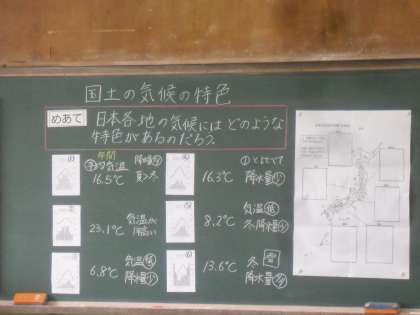 国土の気候の特色
めあて
日本各地の気候にはどのような
特色があるのだろう
年間
平均気温
16.5℃
降水量多
夏>冬
16.3℃
降水量少
23.1℃
気温が
高い
8.2℃
気温低
冬降水量少
6.8℃
気温低
降水量少
13.6℃
冬雪
降水量多